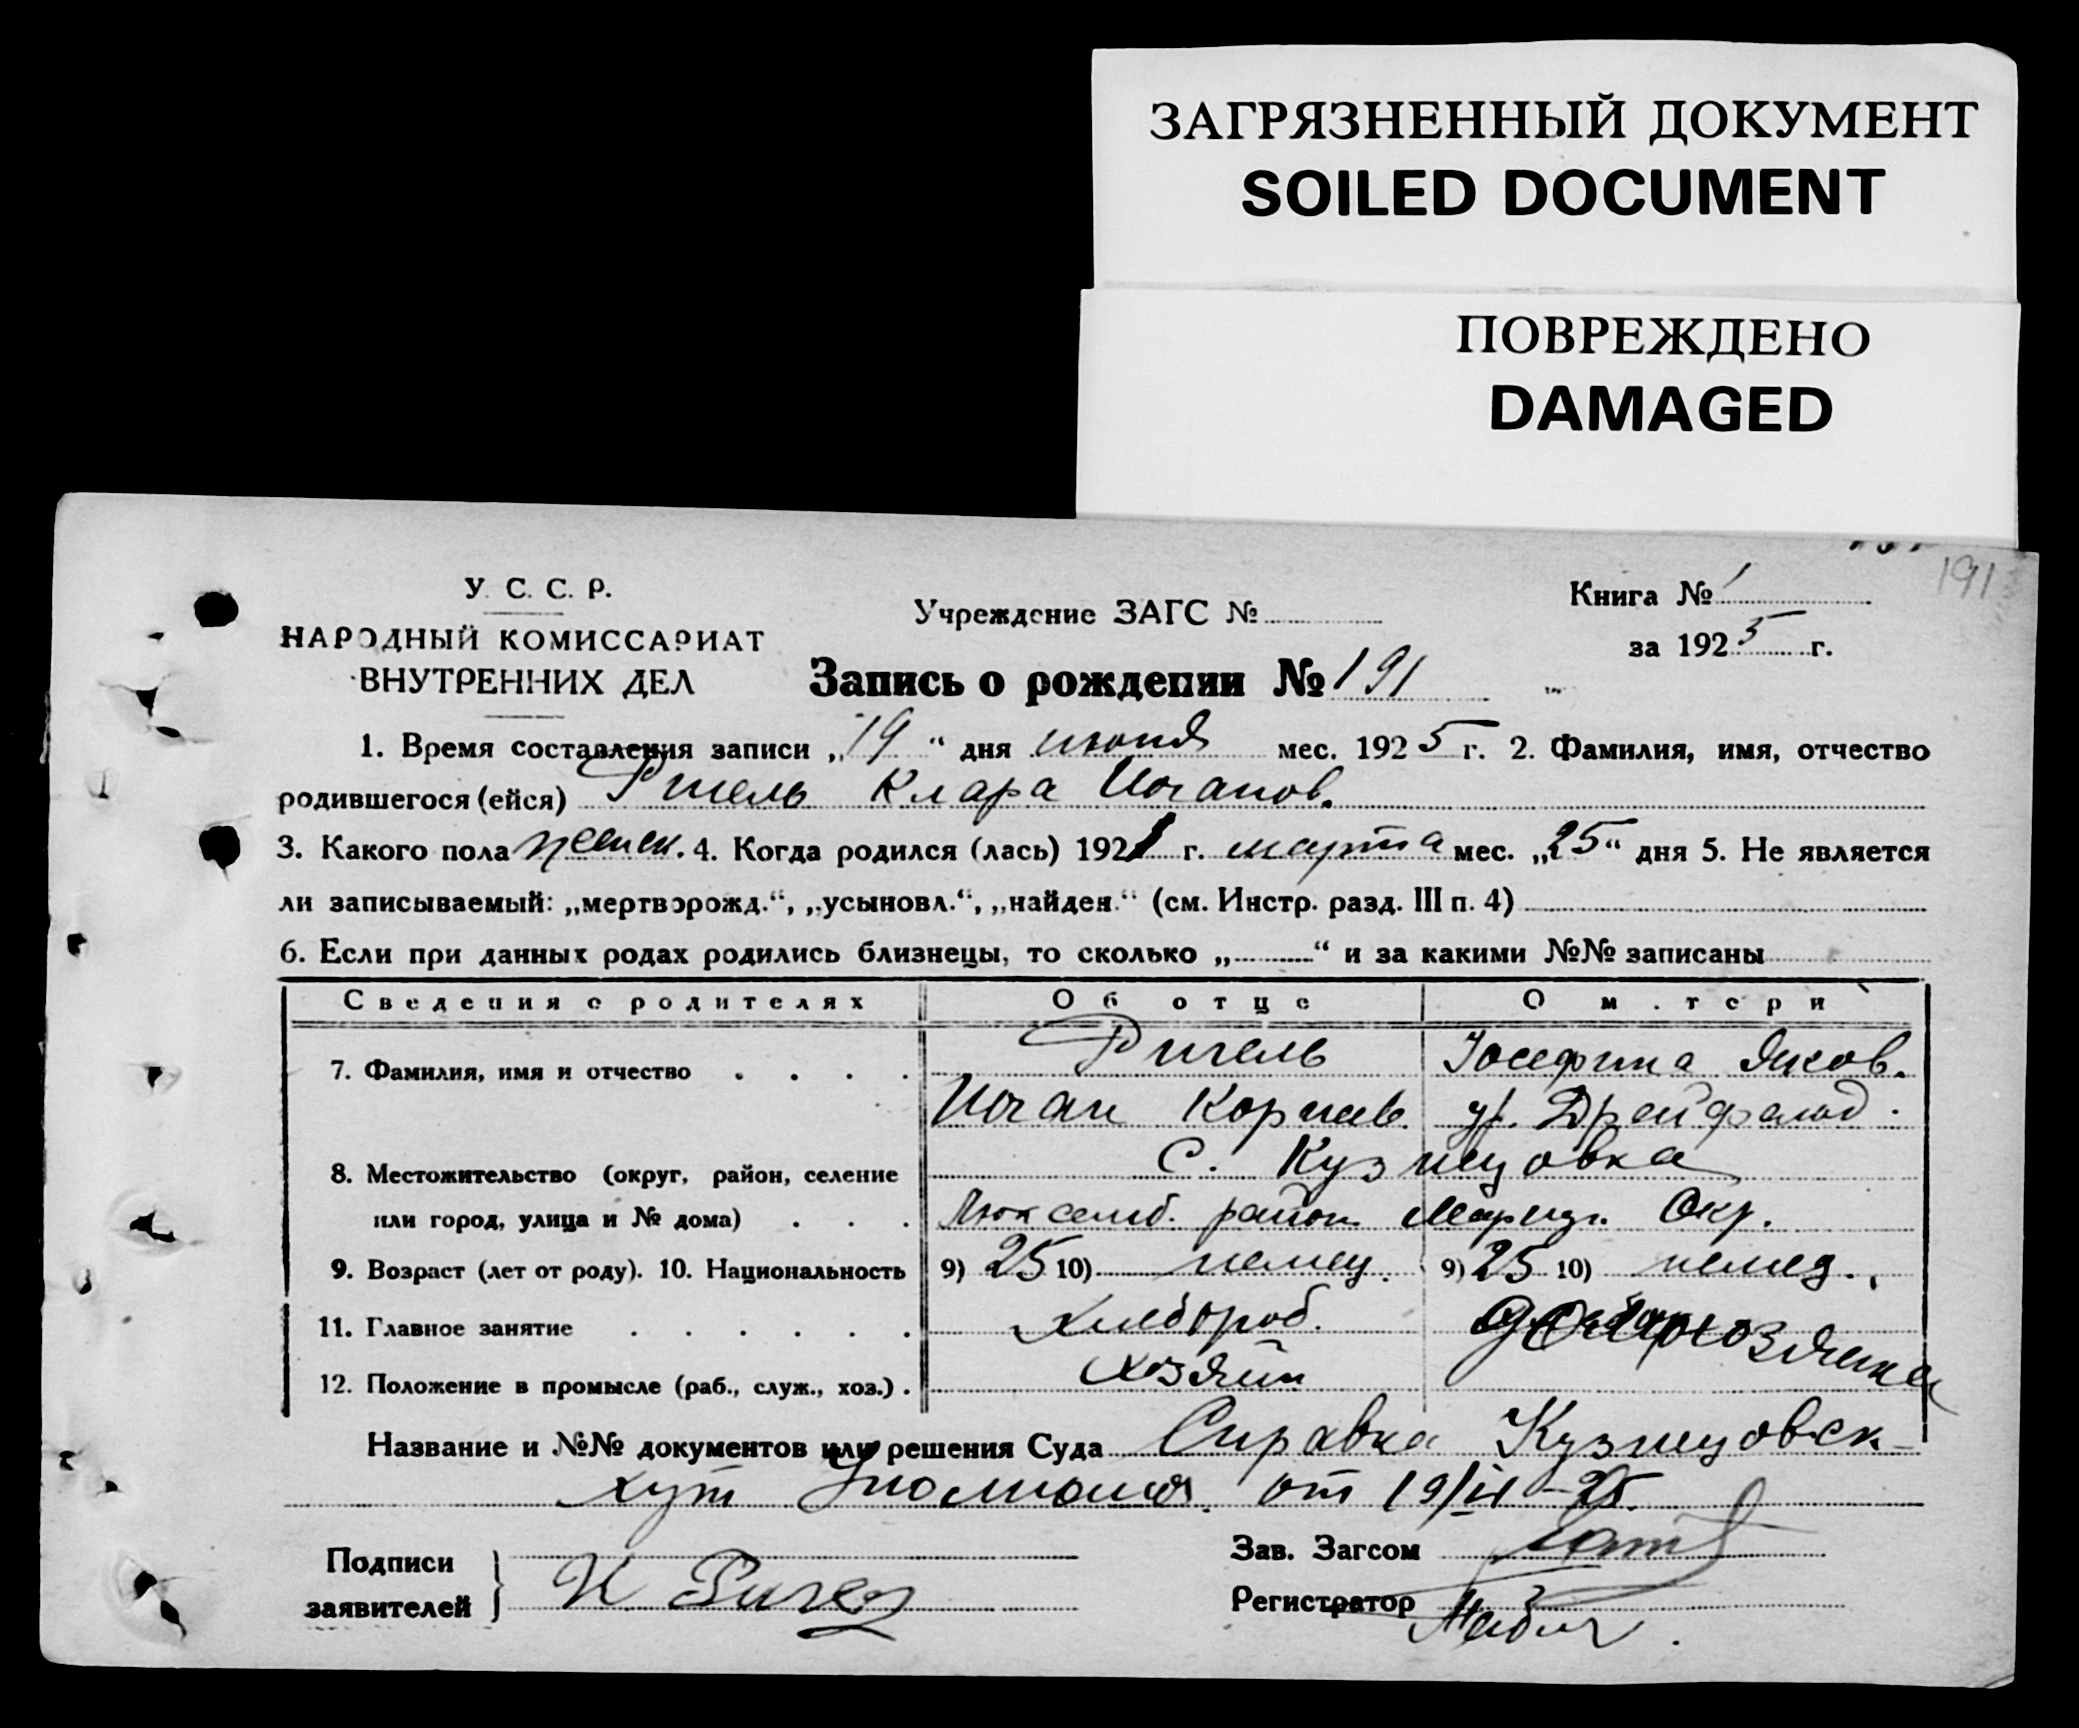 ЗАГРЯЗНЕННЫЙ ДОКУМЕНТ
SOILED DOCUMENT
ПОВРЕЖДЕНО
DAMAGED
191
У. С. С. Р.
НАРОДНЫЙ КОМИССАРИАТ
ВНУТРЕННИХ ДЕЛ
Учреждение ЗАГС №
Книга № 1
за 1925 г.
Запись о рождении № 191
1. Время составления записи „19“ дня июня мес. 1925 г. 2. Фамилия, имя, отчество
родившегося (ейся) Ригель Клара Иоганов.
3. Какого пола женск. 4. Когда родился (лась) 1921 г. марта мес. „25“ дня 5. Не является
ли записываемый: „мертворожд.“, „усыновл.“, „найден.“ (см. Инстр. разд. III п. 4)
6. Если при данных родах родились близнецы, то сколько „ “ и за какими №№ записаны
Сведения о родителях Об отце О матери
7. Фамилия, имя и отчество . . . . Ригель Иосефина Яков.
Иоган Корнев. ур.
8. Местожительство (округ, район, селение С. Кузнецовка
или город, улица и № дома) . . . Люксемб. район Мариуп. Окр.
9. Возраст (лет от роду). 10. Национальность 9) 25 10) немец. 9) 25 10) немец.
11. Главное занятие . . . . . . Хлебороб. домохозяйка
12. Положение в промысле (раб., служ., хоз.) . Хозяин
Название и №№ документов или решения Суда Справка Кузнецовск-
хут от 19/VI-25.
Подписи
заявителей
И Ригел
Зав. Загсом
Регистратор